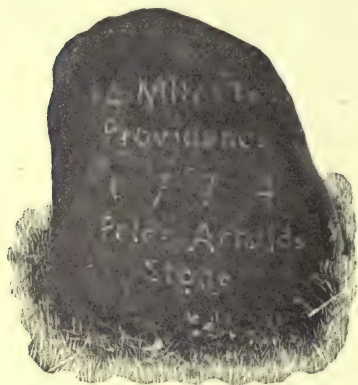 Miles To
Providence
1 7 7 4
Peter Arnolds
Stone